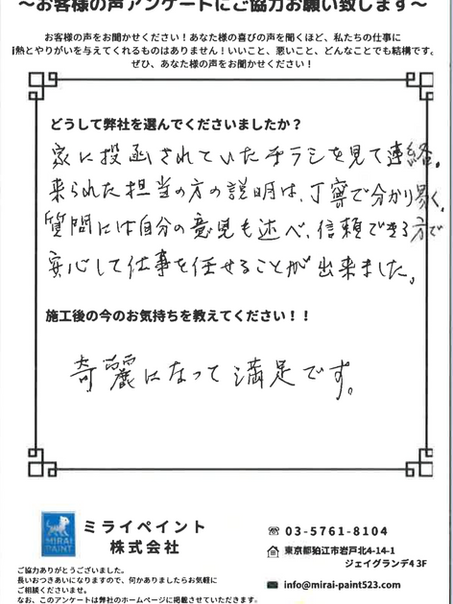 ～お客様の声アンケートにご協力お願い致します～
お客様の声をお聞かせください！あなた様の喜びの声を聞くほど、私たちの仕事に
熱とやりがいを与えてくれるものはありません！いいこと、悪いこと、どんなことでも結構です。
ぜひ、あなた様の声をお聞かせください！
どうして弊社を選んでくださいましたか？
家に投函されていたチラシを見て連絡。
来られた担当の方の説明は、丁寧で分かり易く、
質問には自分の意見も述べ、信頼できる方で
安心して仕事を任せることが出来ました。
施工後の今のお気持ちを教えてください！！
奇麗になって満足です。
MIRAI
PAINT
ミライペイント
株式会社
03-5761-8104
東京都狛江市岩戸北4-14-1
ジェイグランデ4 3F
info@mirai-paint523.com
ご協力ありがとうございました。
長いおつきあいになりますので、何かありましたらお気軽に
ご相談くださいませ。
なお、このアンケートは弊社のホームページに掲載させていただきます。